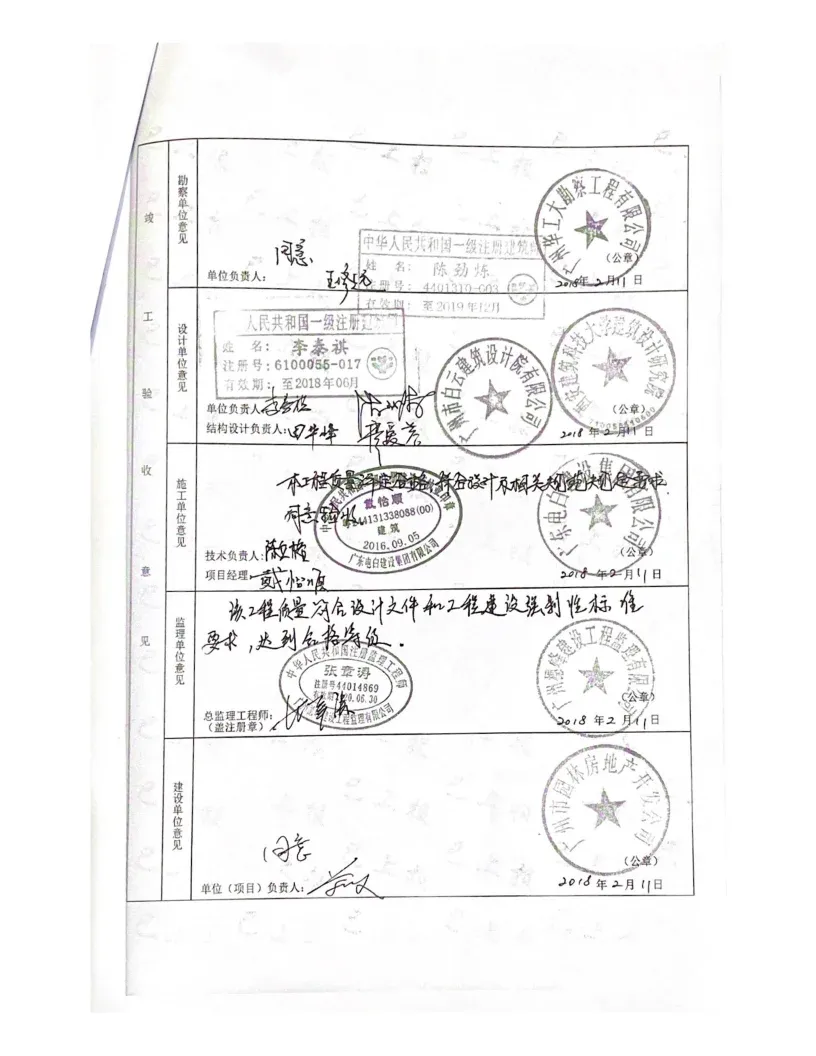 竣工验收意见
勘察单位意见
同意
单位负责人：
广州华工大勘察工程有限公司
(公章)
2018年2月11日
中华人民共和国一级注册建筑师
姓 名： 陈劲炼
注册号：4401310-G03
有效期： 至2019年12月
设计单位意见
人民共和国一级注册建
姓 名： 李泰祺
注册号：6100055-017
有效期： 至2018年06月
单位负责人
结构设计负责人：田华峰
广州市白云建筑设计院有限公司
西安建筑科技大学建筑设计研究院
(公章)
2018年2月11日
施工单位意见
本工程质量评定合格，符合设计及相关规范规定要求
同意验收
戴怡顺
粤244131338088(00)
建筑
2016.09.05
广东电白建设集团有限公司
技术负责人：
项目经理：戴怡顺
广东电白建设集团有限公司
(公章)
2018年2月11日
监理单位意见
该工程质量符合设计文件和工程建设强制性标准
要求，达到合格等级．
中华人民共和国注册监理工程师
张章涛
注册号44014869
有效期 20.06.30
建设工程监理有限公司
总监理工程师：张章涛
(盖注册章)
(公章)
2018年2月11日
建设单位意见
同意
单位（项目）负责人：
广州市园林房地产开发公司
(公章)
2018年2月11日